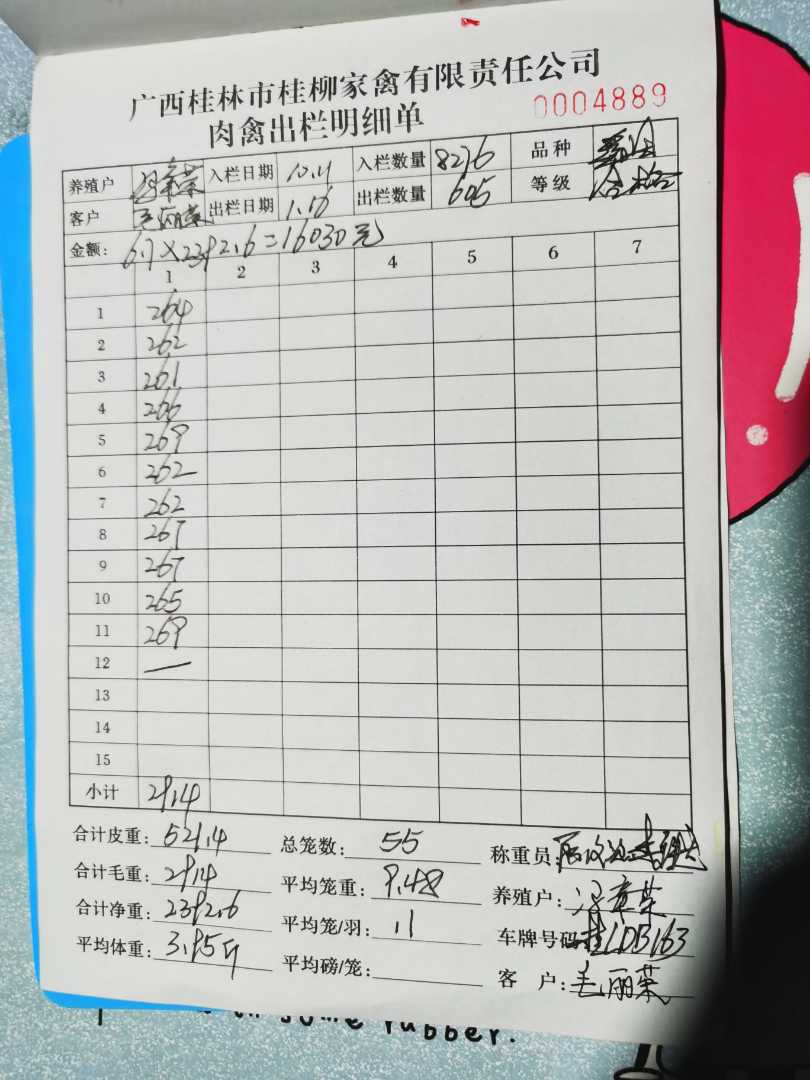 广西桂林市桂柳家禽有限责任公司
肉禽出栏明细单 0004889
养殖户 冯章荣 入栏日期 10.11 入栏数量 8276 品种
客户 毛丽荣 出栏日期 1.16 出栏数量 605 等级 合格
金额: 6.7×2392.6=16030元
1 2 3 4 5 6 7
1 264
2 262
3 261
4 266
5 269
6 262
7 262
8 267
9 267
10 265
11 269
12 —
13
14
15
小计 2914
合计皮重: 521.4 总笼数: 55 称重员:
合计毛重: 2914 平均笼重: 9.48 养殖户: 冯章荣
合计净重: 2392.6 平均笼/羽: 11 车牌号码 桂LDB163
平均体重: 3.95斤 平均磅/笼: 客 户: 毛丽荣
some rubber.